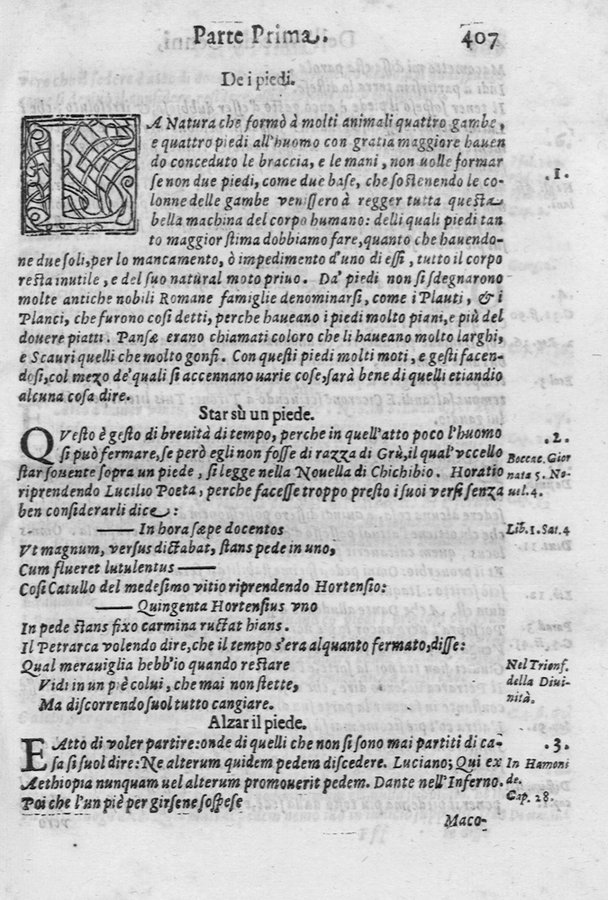 Parte Prima. 407
De i piedi.
LA Natura che formò à molti animali quattro gambe,
e quattro piedi all'huomo con gratia maggiore hauen
do conceduto le braccia, e le mani, non uolle formar
se non due piedi, come due base, che sostenendo le co-
lonne delle gambe venissero à regger tutta questa
bella machina del corpo humano: delli quali piedi tan
to maggior stima dobbiamo fare, quanto che hauendo-
ne due soli, per lo mancamento, ò impedimento d'uno di essi, tutto il corpo
resta inutile, e del suo natural moto priuo. Da' piedi non si sdegnarono
molte antiche nobili Romane famiglie denominarsi, come i Plauti, & i
Planci, che furono cosi detti, perche haueano i piedi molto piani, e più del
douere piatti. Pansæ erano chiamati coloro che li haueano molto larghi,
e Scauri quelli che molto gonfi. Con questi piedi molti moti, e gesti facen-
dosi, col mezo de' quali si accennano uarie cose, sarà bene di quelli etiandio
alcuna cosa dire.
.1.
Star sù un piede.
QVesto è gesto di breuità di tempo, perche in quell'atto poco l'huomo
si può fermare, se però egli non fosse di razza di Grù, il qual vccello
star souente sopra un piede, si legge nella Nouella di Chichibio. Horatio
riprendendo Lucilio Poeta, perche facesse troppo presto i suoi versi senza
ben considerarli dice:
.2.
Boccac. Gior
nata 5. No-
uel. 4.
—— In hora sæpe docentos
Vt magnum, versus dictabat, stans pede in uno,
Cum flueret lutulentus ——
Lib. 1. Sat. 4
Cosi Catullo del medesimo vitio riprendendo Hortensio:
—— Quingenta Hortensius vno
In pede stans fixo carmina ructat hians.
Il Petrarca volendo dire, che il tempo s'era alquanto fermato, disse:
Qual merauiglia hebb'io quando restare
Vidi in un piè colui, che mai non stette,
Ma discorrendo suol tutto cangiare.
Nel Trionf.
della Diui-
nità.
Alzar il piede.
E Atto di voler partire: onde di quelli che non si sono mai partiti di ca-
sa si suol dire: Ne alterum quidem pedem discedere. Luciano; Qui ex
Aethiopia nunquam uel alterum promouerit pedem. Dante nell'Inferno.
Poi che l'un piè per girsene sospese
.3.
In Hamoni
de.
Cap. 28.
Maco-